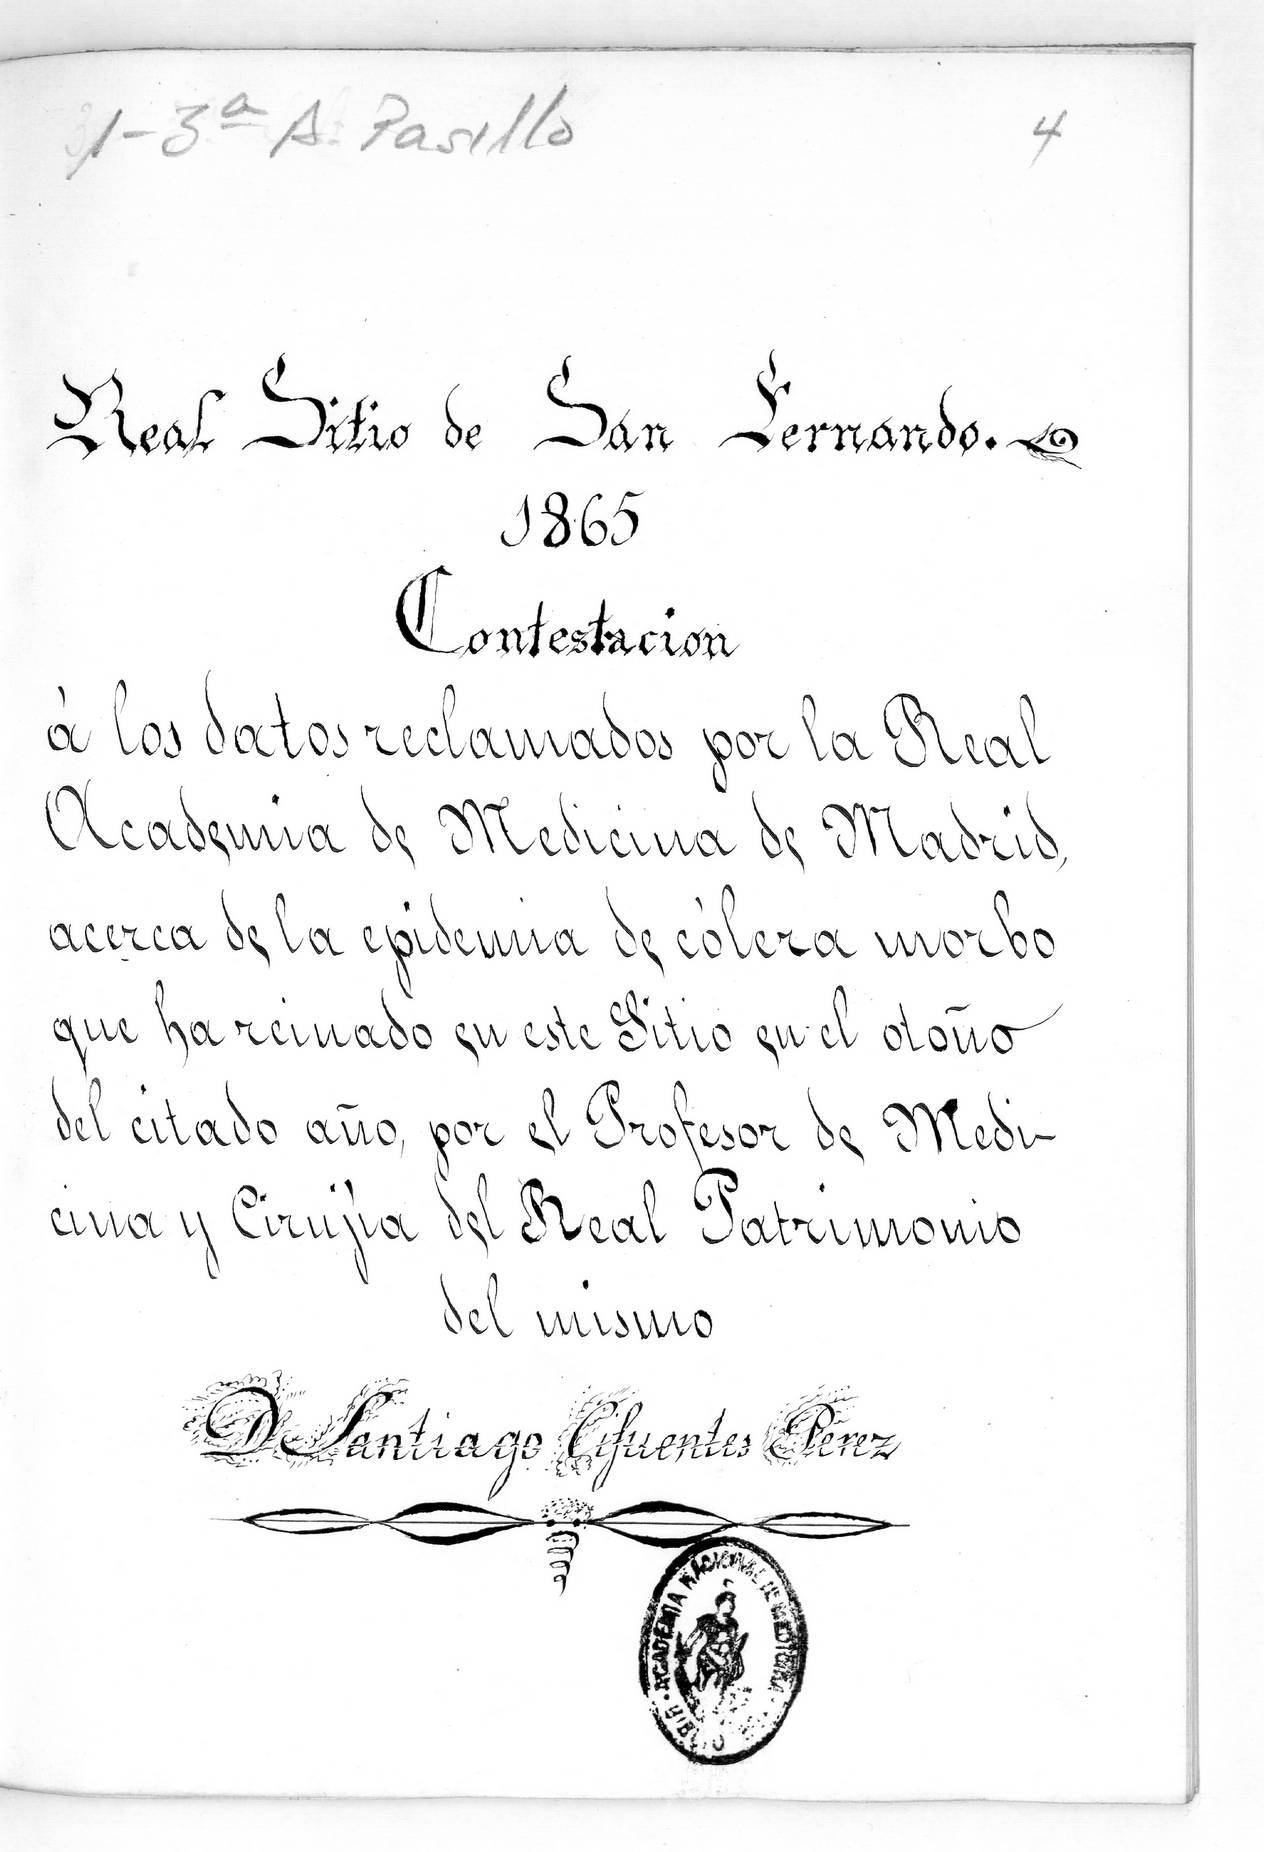 31-3ª A. Pasillo
4
Real Sitio de San Fernando.
1865
Contestacion
á los datos reclamados por la Real
Academia de Medicina de Madrid,
acerca de la epidemia de cólera morbo
que ha reinado en este Sitio en el otoño
del citado año, por el Profesor de Medi-
cina y Cirujía del Real Patrimonio
del mismo
D. Santiago Cifuentes Pérez
ACADEMIA NACIONAL DE MEDICINA